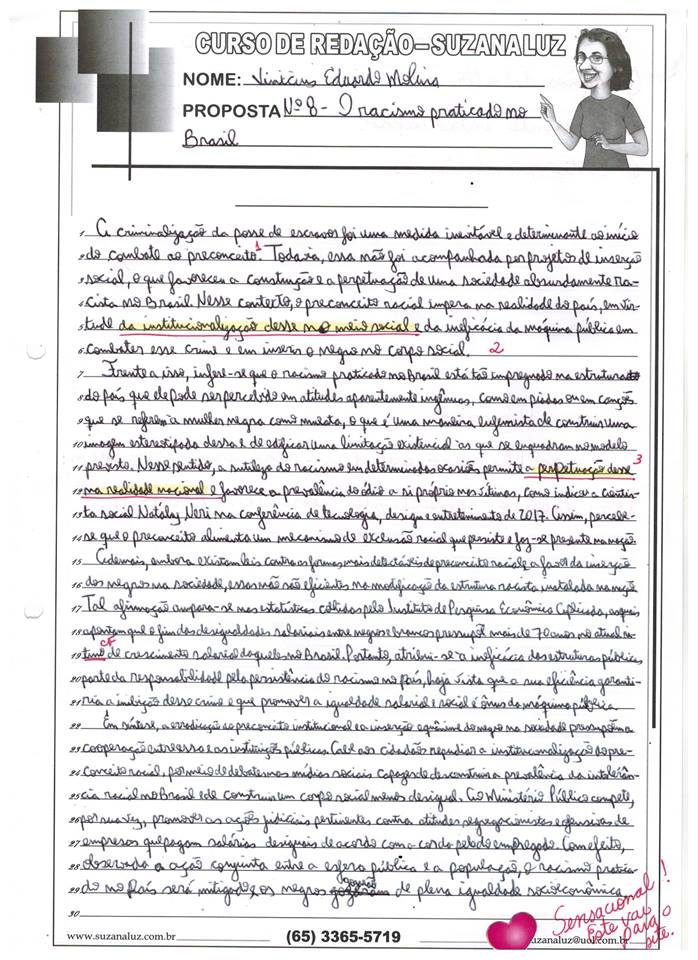 CURSO DE REDAÇÃO–SUZANA LUZ
NOME: Vinícius Eduardo Molina
PROPOSTA Nº 8 - O racismo praticado no
Brasil
1 A criminalização da posse de escravos foi uma medida inevitável e determinante ao início
2 do combate ao preconceito. 1 Todavia, essa não foi acompanhada por projetos de inserção
3 social, o que favoreceu a construção e a perpetuação de uma sociedade absurdamente ra-
4 cista no Brasil. Nesse contexto, o preconceito racial impera na realidade do país, em vir-
5 tude da institucionalização desse no meio social e da ineficácia da máquina pública em
6 combater esse crime e em inserir o negro no corpo social. 2
7 Frente a isso, infere-se que o racismo praticado no Brasil está tão impregnado na estrutura
8 do país que ele pode ser percebido em atitudes aparentemente ingênuas, como em piadas ou em canções
9 que se referem à mulher negra como mulata, o que é uma maneira eufemista de construir uma
10 imagem estereotipada dessa e de edificar uma limitação existencial as que se enquadram no modelo
11 previsto. Nesse sentido, a sutileza do racismo em determinadas ocasiões permite a perpetuação desse 3
12 na realidade nacional e favorece a prevalência do ódio a si próprio nas vítimas, como indica a cientis-
13 ta social Nátaly Neri na conferência de tecnologia, design e entretenimento de 2017. Assim, percebe-
14 se que o preconceito alimenta um mecanismo de exclusão racial que persiste e faz-se presente na nação.
15 Ademais, embora existam leis contra as formas mais detectáveis de preconceito racial e a favor da inserção
16 dos negros na sociedade, essas não são eficientes na modificação da estrutura racista instalada na nação
17 Tal afirmação ampara-se nas estatísticas colhidas pelo Instituto de Pesquisa Econômica Aplicada, as quais
18 apontam que o fim das desigualdades salariais entre negros e brancos pressupõe mais de 70 anos no atual ri-
CF
19 timo de crescimento salarial daqueles no Brasil. Portanto, atribui-se à ineficácia das estruturas públicas
20 parte da responsabilidade pela persistência do racismo no país, haja vista que a sua eficiência garanti-
21 ria a inibição desse crime e que promover a igualdade salarial e social é ônus da máquina pública.
22 Em síntese, a erradicação ao preconceito institucional e a inserção equânime do negro na sociedade pressupõem a
23 cooperação entre essa e as instituições públicas. Cabe aos cidadãos repudiar a institucionalização do pre-
24 conceito racial, por meio de debates nas mídias sociais capazes de desconstruir a prevalência da intolerân-
25 cia racial no Brasil e de construir um corpo social menos desigual. Ao Ministério Público compete,
26 por sua vez, promover as ações judiciais pertinentes contra atitudes segregacionistas e ofensivas de
27 empresas que pagam salários desiguais de acordo com a cor da pele do empregado. Com efeito,
28 observada a ação conjunta entre a esfera pública e a população, o racismo pratica-
gozarão
29 do no País será mitigado e os negros de plena igualdade socioeconômica.
30
Sensacional!
Este vai
para o
site.
www.suzanaluz.com.br
(65) 3365-5719
uzanaluz@uol.com.br